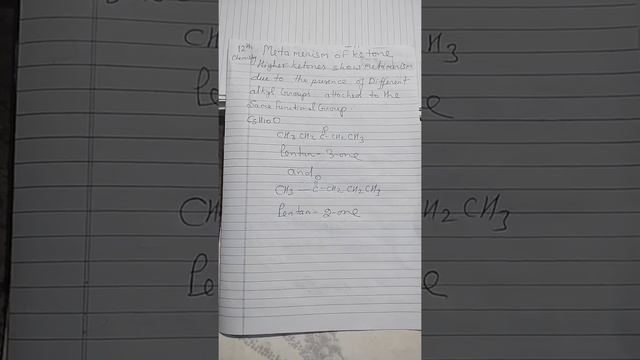 12th Chemistry
Metamerism of Ketone
Higher ketones show metamerism
due to the presence of Different
alkyl Groups attached to the
Same Functional Group.
C5H10O
O
CH3 CH2 C-CH2 CH3
Pentan-3-one
and
O
CH3 — C-CH2 CH2 CH3
Pentan-2-one